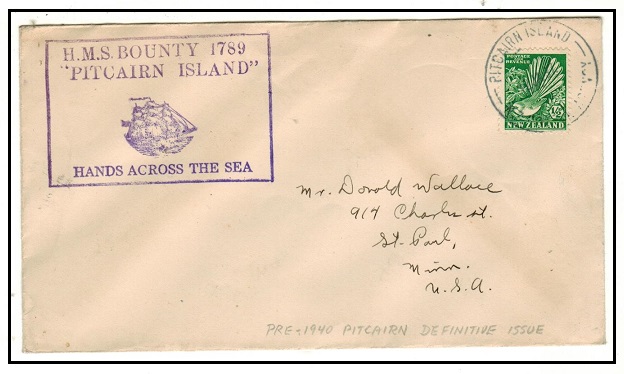 H.M.S. BOUNTY 1789
"PITCAIRN ISLAND"
HANDS ACROSS THE SEA
PITCAIRN ISLAND
POSTAGE
REVENUE
NEW ZEALAND
Mr. Donald Wallace
914 Charles st.
St. Paul,
Minn.
U.S.A.
PRE-1940 PITCAIRN DEFINITIVE ISSUE